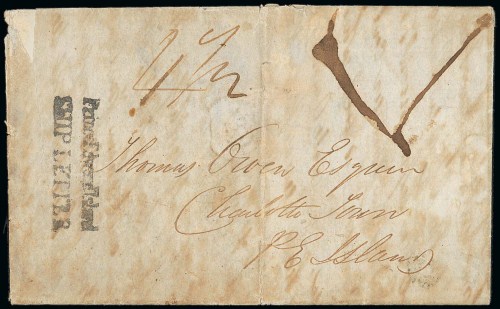 4½
Prince Edward Island
SHIP LETTER
Thomas Owen Esquire
Charlotte Town
P.E. Island